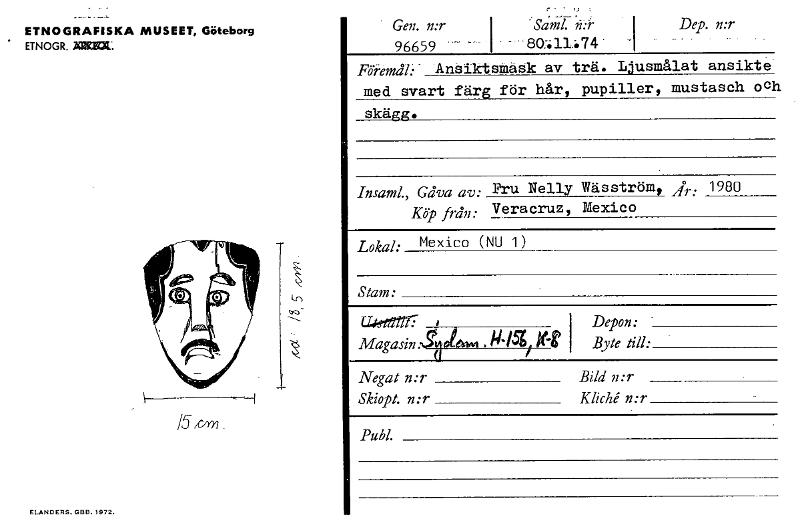 ETNOGRAFISKA MUSEET, Göteborg
ETNOGR.
Gen. n:r
96659
Saml. n:r
80.11.74
Dep. n:r
Föremål: Ansiktsmask av trä. Ljusmålat ansikte
med svart färg för hår, pupiller, mustasch och
skägg.
Insaml., Gåva av: Fru Nelly Wäsström, År: 1980
Köp från: Veracruz, Mexico
Lokal: Mexico (NU 1)
Stam:
Utställt:
Depon:
Magasin: Sydam. H-156, K-8
Byte till:
Negat n:r
Bild n:r
Skiopt. n:r
Kliché n:r
Publ.
ca: 18,5 cm.
15 cm.
ELANDERS. GBB. 1972.